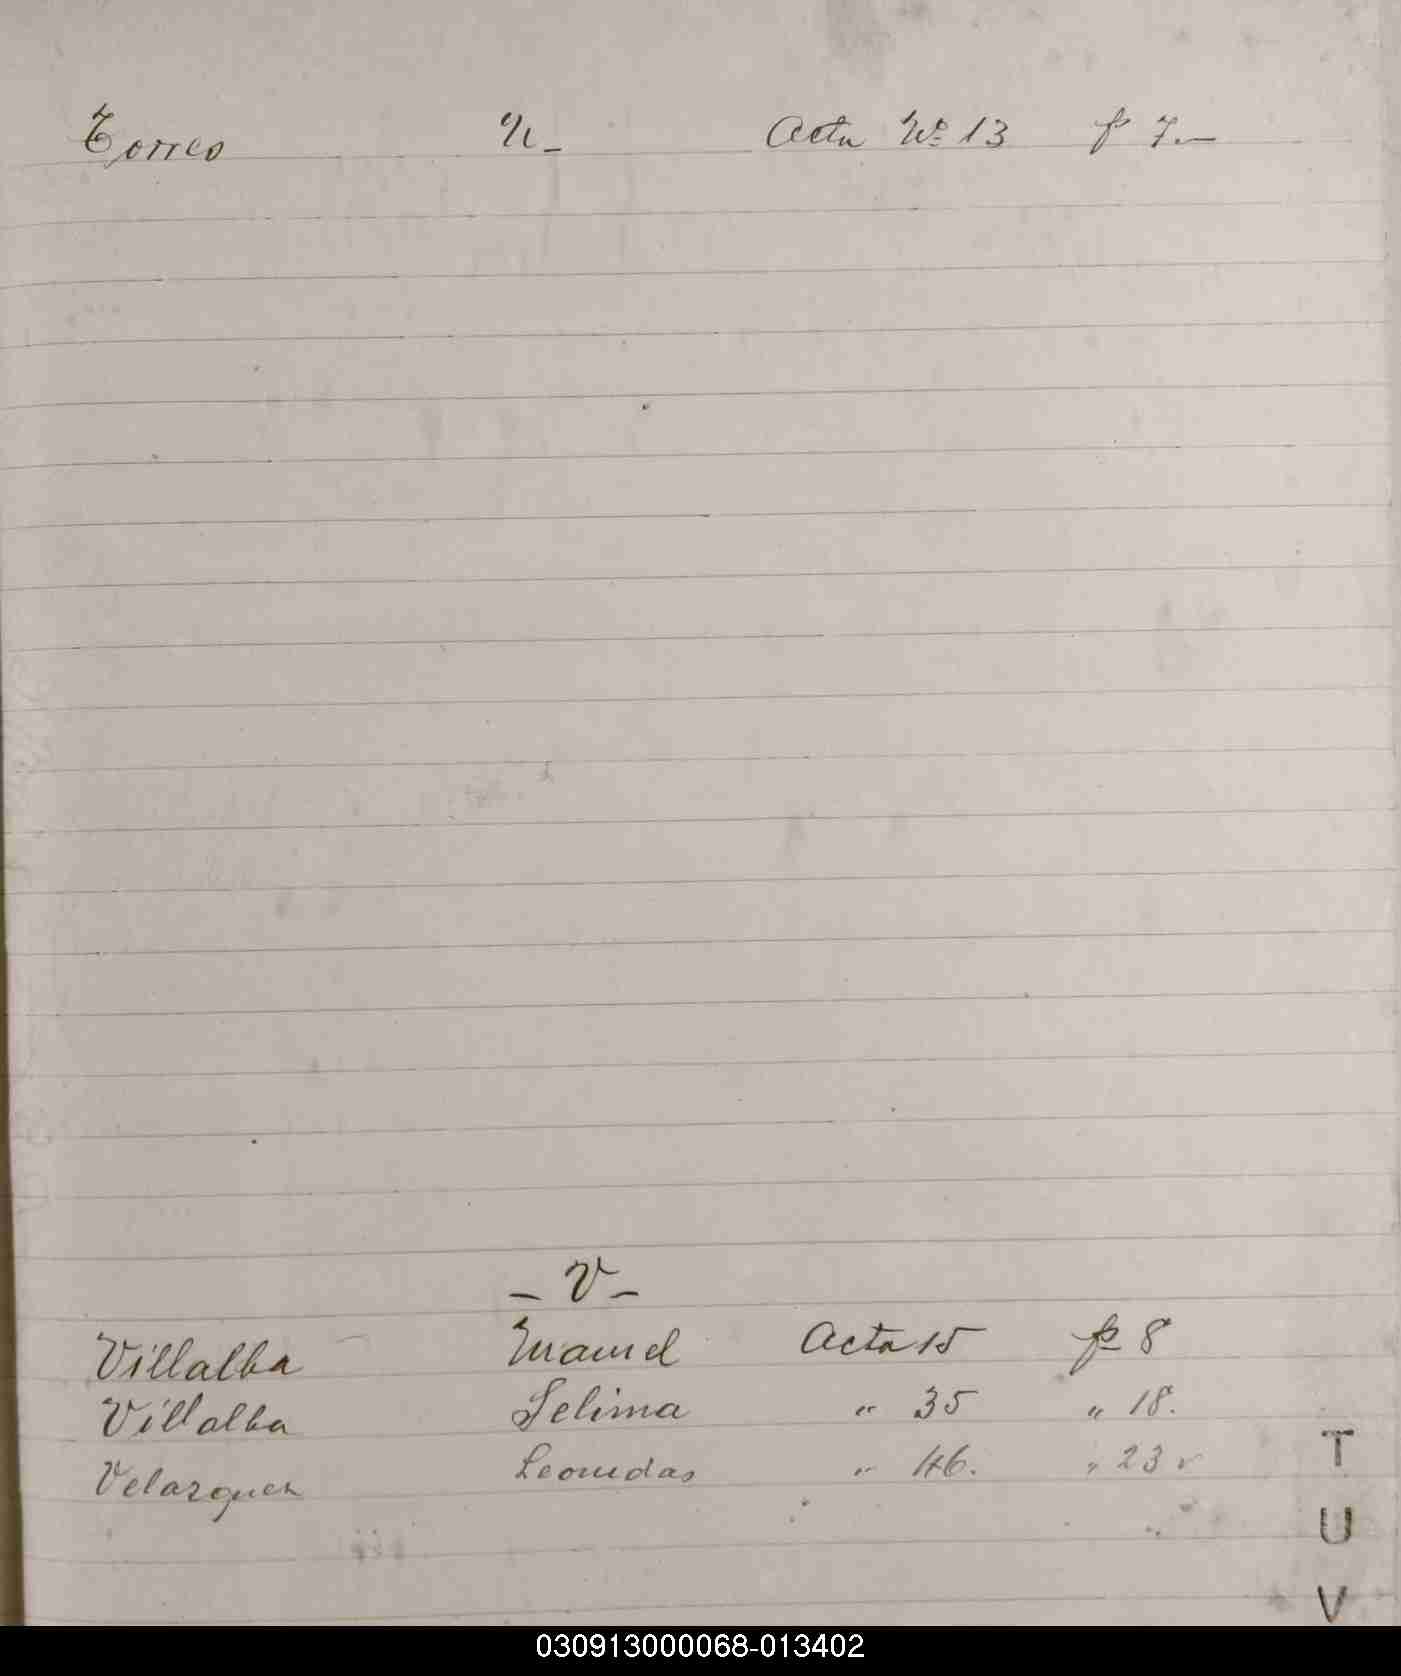 Torres N_ Acta Nº 13 f 7.—
– V –
Villalba Manuel Acta 15 f 8
Villalba Selima " 35 " 18.
Velazquez Leonidas " 46. " 23 v
T
U
V
030913000068-013402